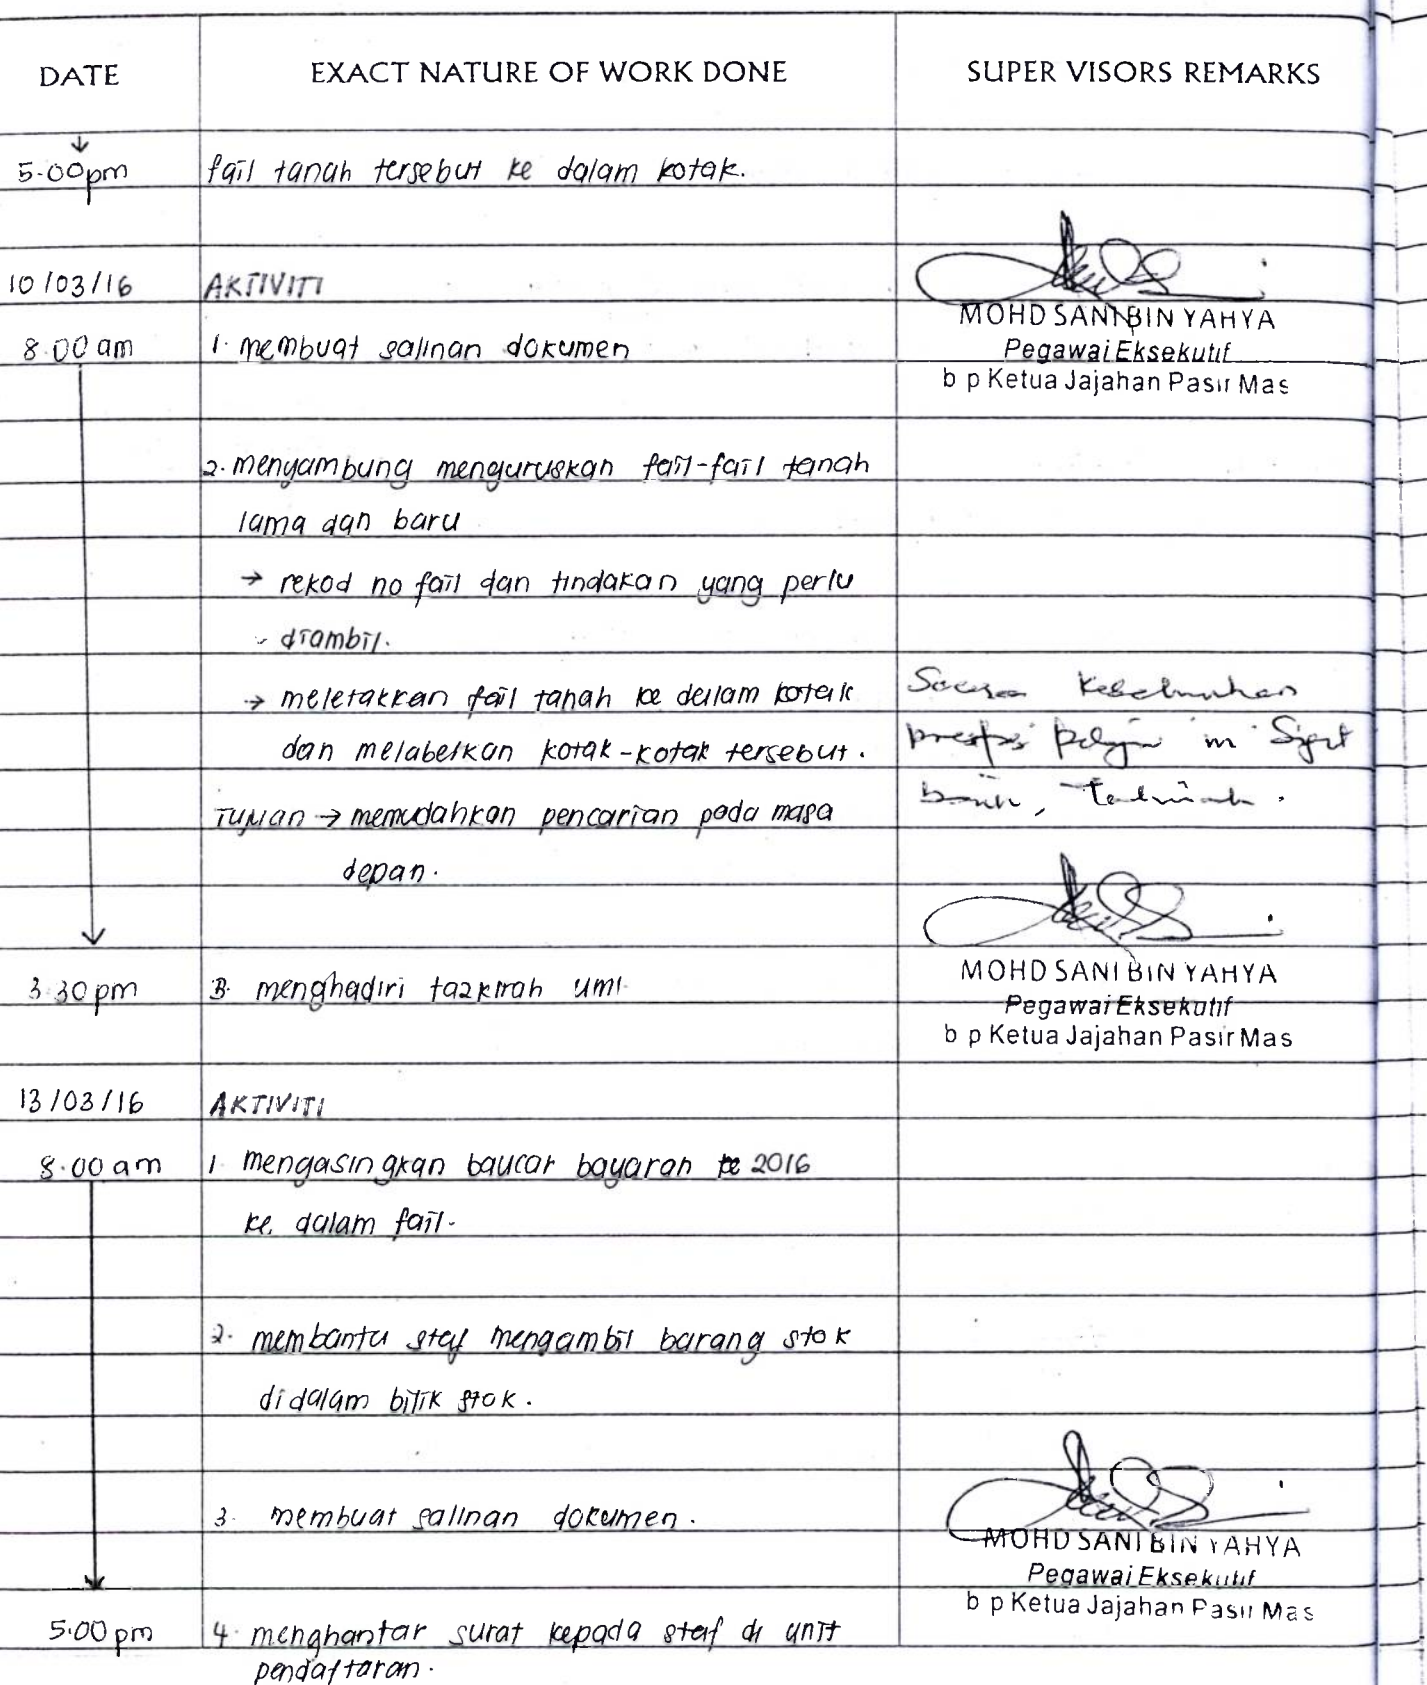 DATE EXACT NATURE OF WORK DONE SUPER VISORS REMARKS
5.00pm fail tanah tersebut ke dalam kotak.
10/03/16 AKTIVITI
MOHD SANI BIN YAHYA
8.00 am 1. membuat salinan dokumen
Pegawai Eksekutif
b p Ketua Jajahan Pasir Mas
2. menyambung menguruskan fail-fail tanah
lama dan baru
→ rekod no fail dan tindakan yang perlu
diambil.
→ meletakkan fail tanah ke dalam kotak
dan melabelkan kotak-kotak tersebut.
Tujuan → memudahkan pencarian pada masa
depan.
3.30pm 3. menghadiri tazkirah umi.
MOHD SANI BIN YAHYA
Pegawai Eksekutif
b p Ketua Jajahan Pasir Mas
13/03/16 AKTIVITI
8.00 am 1. mengasingkan baucar bayaran 2016
ke dalam fail.
2. membantu staf mengambil barang stok
didalam bilik stok.
3. membuat salinan dokumen.
MOHD SANI BIN YAHYA
Pegawai Eksekutif
b p Ketua Jajahan Pasir Mas
5.00 pm 4. menghantar surat kepada staf di unit
pendaftaran.